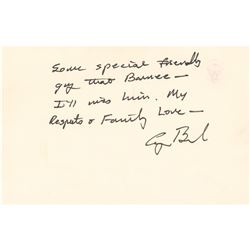 Some special friendly
guy that Barnee –
I'll miss him. My
Respects & Family Love –
G Bush